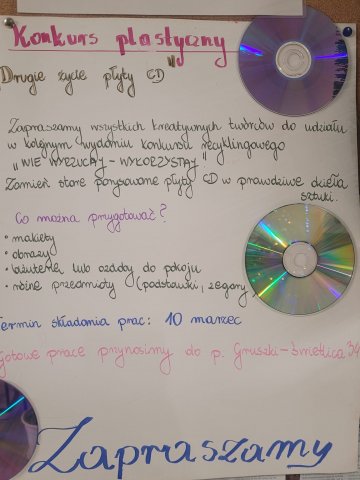 Konkurs plastyczny
"Drugie życie płyty CD"
Zapraszamy wszystkich kreatywnych twórców do udziału
w kolejnym wydaniu konkursu recyklingowego
"NIE WYRZUCAJ - WYKORZYSTAJ"
Zamień stare porysowane płyty CD w prawdziwe dzieła
sztuki.
Co można przygotować?
• makiety
• obrazy
• biżuterię lub ozdoby do pokoju
• różne przedmioty (podstawki, zegary)
Termin składania prac: 10 marzec
Gotowe prace przynosimy do p. Gruszki - świetlica 34
Zapraszamy